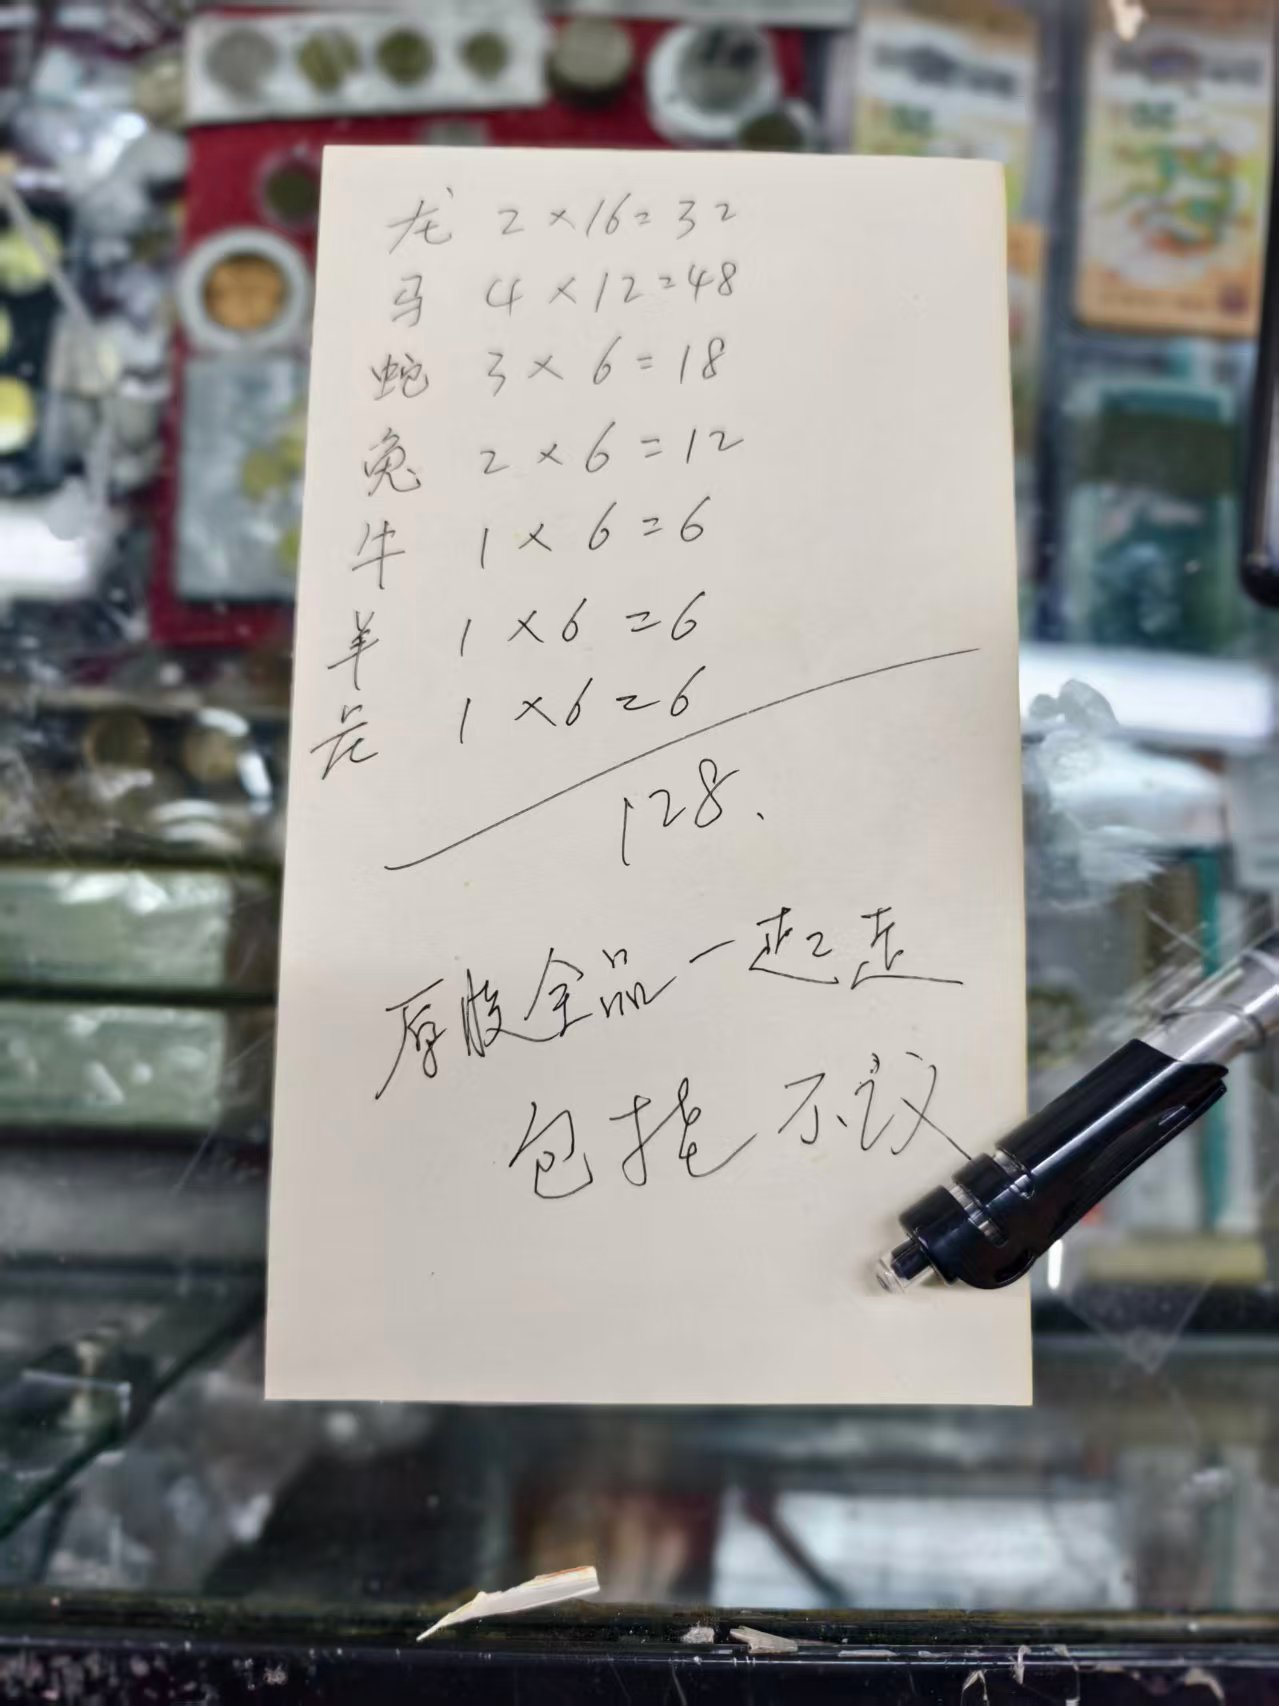 龙 2×16=32
马 4×12=48
蛇 3×6=18
兔 2×6=12
牛 1×6=6
羊 1×6=6
虎 1×6=6
128、
原胶全品一起走
包挂不议